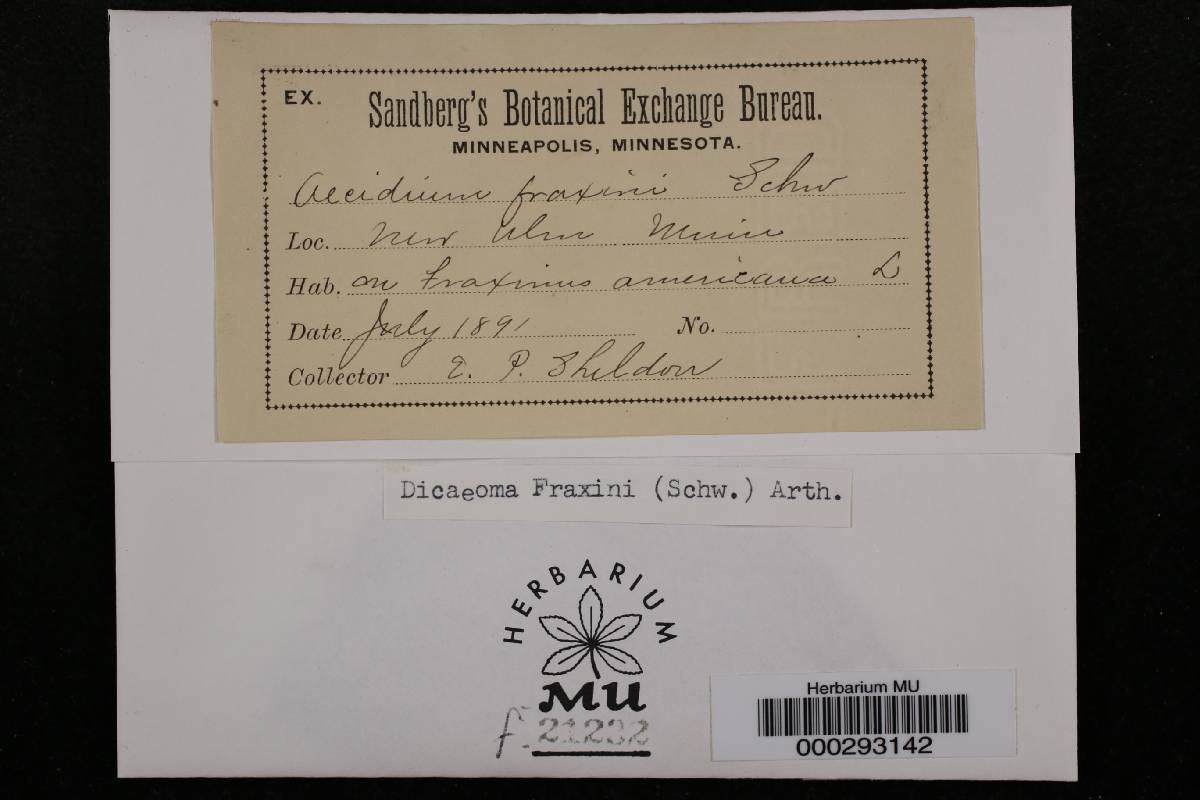 EX. Sandberg's Botanical Exchange Bureau.
MINNEAPOLIS, MINNESOTA.
Aecidium fraxini Schw
Loc. New Ulm Minn
Hab. on Fraxinus americana L
Date July 1891 No.
Collector E. P. Sheldon
Dicaeoma Fraxini (Schw.) Arth.
HERBARIUM
MU
f. 21232
Herbarium MU
000293142